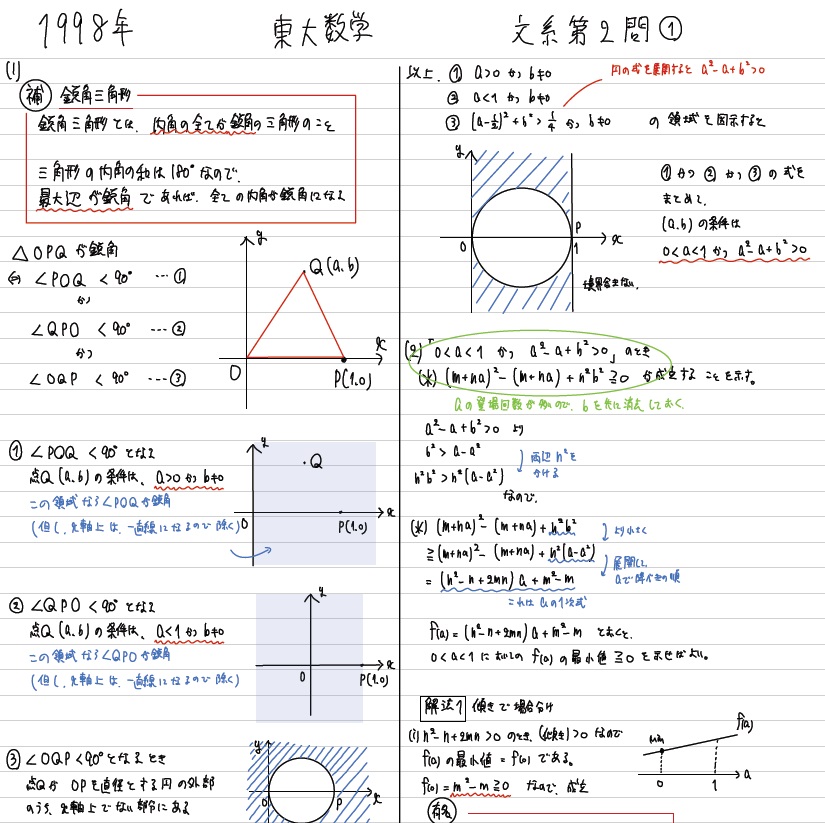 1998年 東大数学 文系第2問①
(1)
補 鋭角三角形
鋭角三角形とは、内角の全てが鋭角の三角形のこと
三角形の内角の和は180°なので、
最大辺が鋭角であれば、全ての内角が鋭角になる
△OPQが鋭角
⇔ ∠POQ < 90° … ①
かつ
∠QPO < 90° … ②
かつ
∠OQP < 90° … ③
y
Q(a,b)
x
O
P(1,0)
① ∠POQ < 90° となる
点Q(a,b)の条件は、a>0 かつ b≠0
この領域なら∠POQが鋭角
(但し、x軸上は、一直線になるので除く)
y
Q
x
O
P(1,0)
② ∠QPO < 90° となる
点Q(a,b)の条件は、a<1 かつ b≠0
この領域なら∠QPOが鋭角
(但し、x軸上は、一直線になるので除く)
y
x
O
P(1,0)
③ ∠OQP < 90° となるとき
点Qが OPを直径とする円の外部
のうち、x軸上でない部分にある
y
O
P
x
以上、① a>0 かつ b≠0
② a<1 かつ b≠0
③ (a-½)²+b²>¼ かつ b≠0 の領域を図示すると
円の式を展開すると a²-a+b²>0
y
O
P
1
x
境界含まない。
①かつ②かつ③の式を
まとめて、
(a,b)の条件は
0<a<1 かつ a²-a+b²>0
(2)「0<a<1 かつ a²-a+b²>0」のとき
(※) (m+na)²-(m+na)+n²b²≧0 が成立することを示す。
aの登場回数が多いので、bを先に消去しておく。
a²-a+b²>0 より
b²>a-a²
両辺 n²を
かける
n²b²>n²(a-a²)
なので、
(※) (m+na)²-(m+na)+n²b²
より小さく
≧(m+na)²-(m+na)+n²(a-a²)
展開して
aで降べきの順
=(n²-n+2mn)a+m²-m
これはaの1次式
f(a)=(n²-n+2mn)a+m²-m とおくと、
0<a<1 においての f(a) の最小値≧0 を示せばよい。
解法1 傾きで場合分け
(i) n²-n+2mn>0 のとき、(傾き)>0 なので
f(a)の最小値=f(0)である。
f(0)=m²-m≧0 なので、成立
min
f(a)
0
1
a